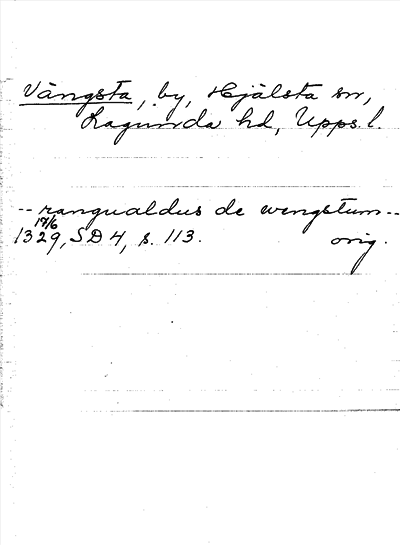 Vängsta, by, Hjälsta sn,
Lagunda hd, Upps. l.
-- rangualdus de wengstum --
1329 19/6, SD 4, s. 113. orig.